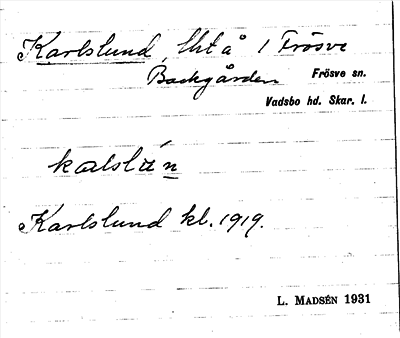 Karlslund, lht å 1 Frösve
Backgården Frösve sn.
Vadsbo hd. Skar. l.
kɑlslún
Karlslund kl. 1919.
L. MADSÉN 1931